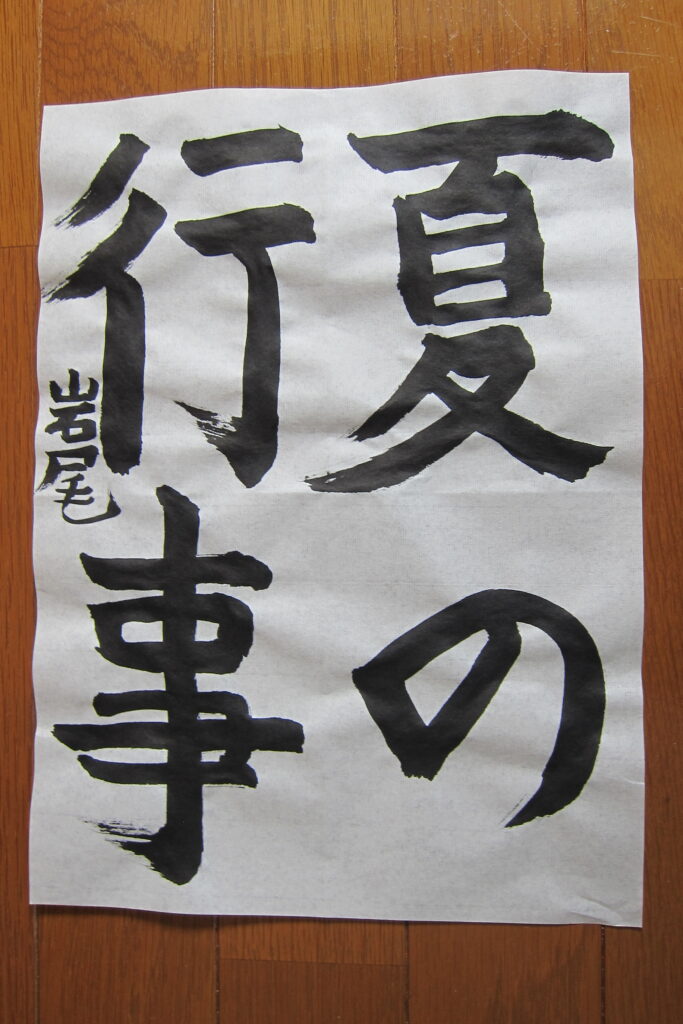 夏の
行事
岩尾